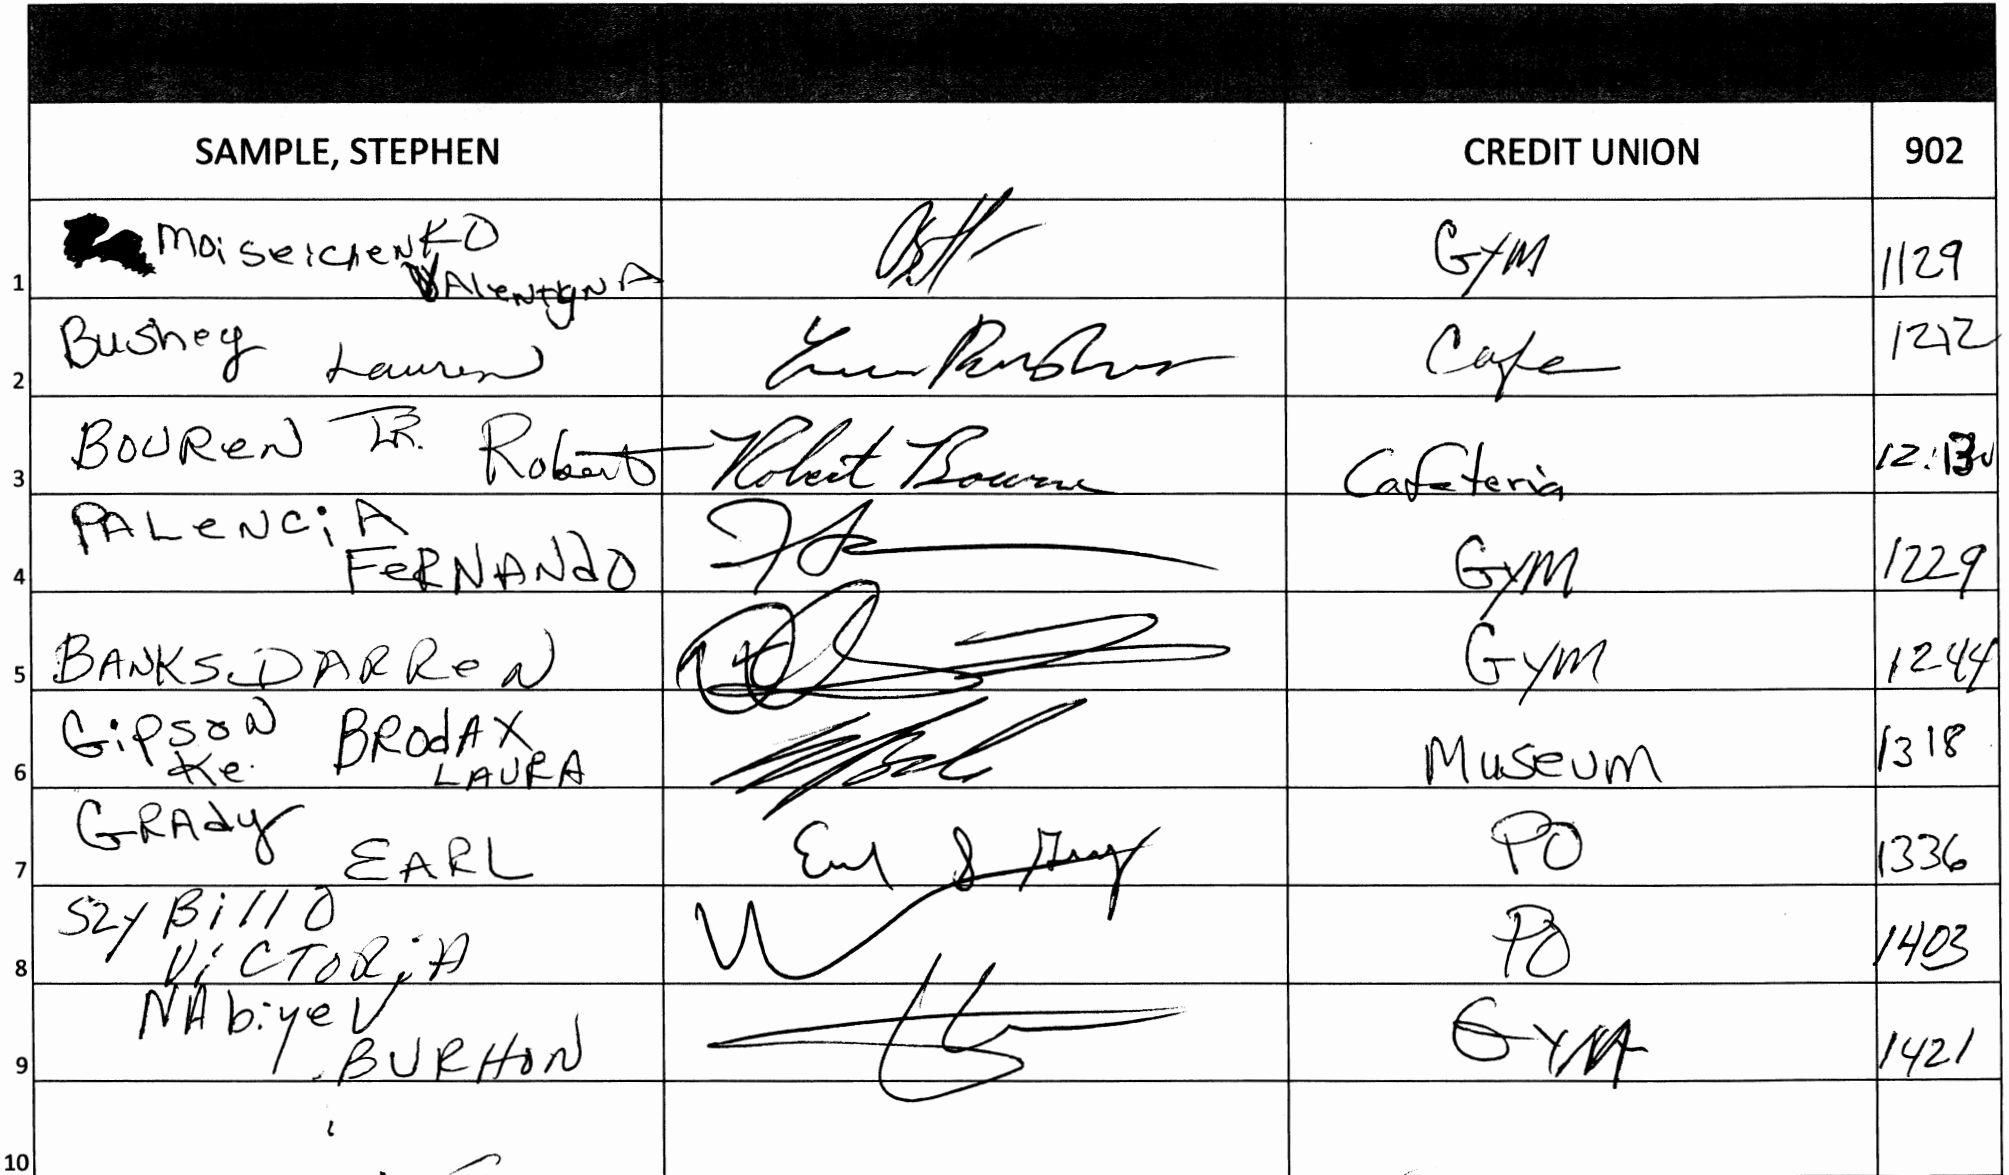 SAMPLE, STEPHEN CREDIT UNION 902
1 MOiseicHeNKO VAleNtyNA GYM 1129
2 Bushey Lauren Cafe 1212
3 BOUReN JR. Robert Robert Bourne Cafeteria
4 PALeNCiA FeRNANdO GYM 1229
5 BANKS DARReN GYM 1244
6 GiPSON Ke. BROdAX LAURA MUSeUM 1318
7 GRAdy EARL PO 1336
8 SZYBillO ViCTORiA PO 1403
9 NAbiyeV BURHON GYM 1421
10